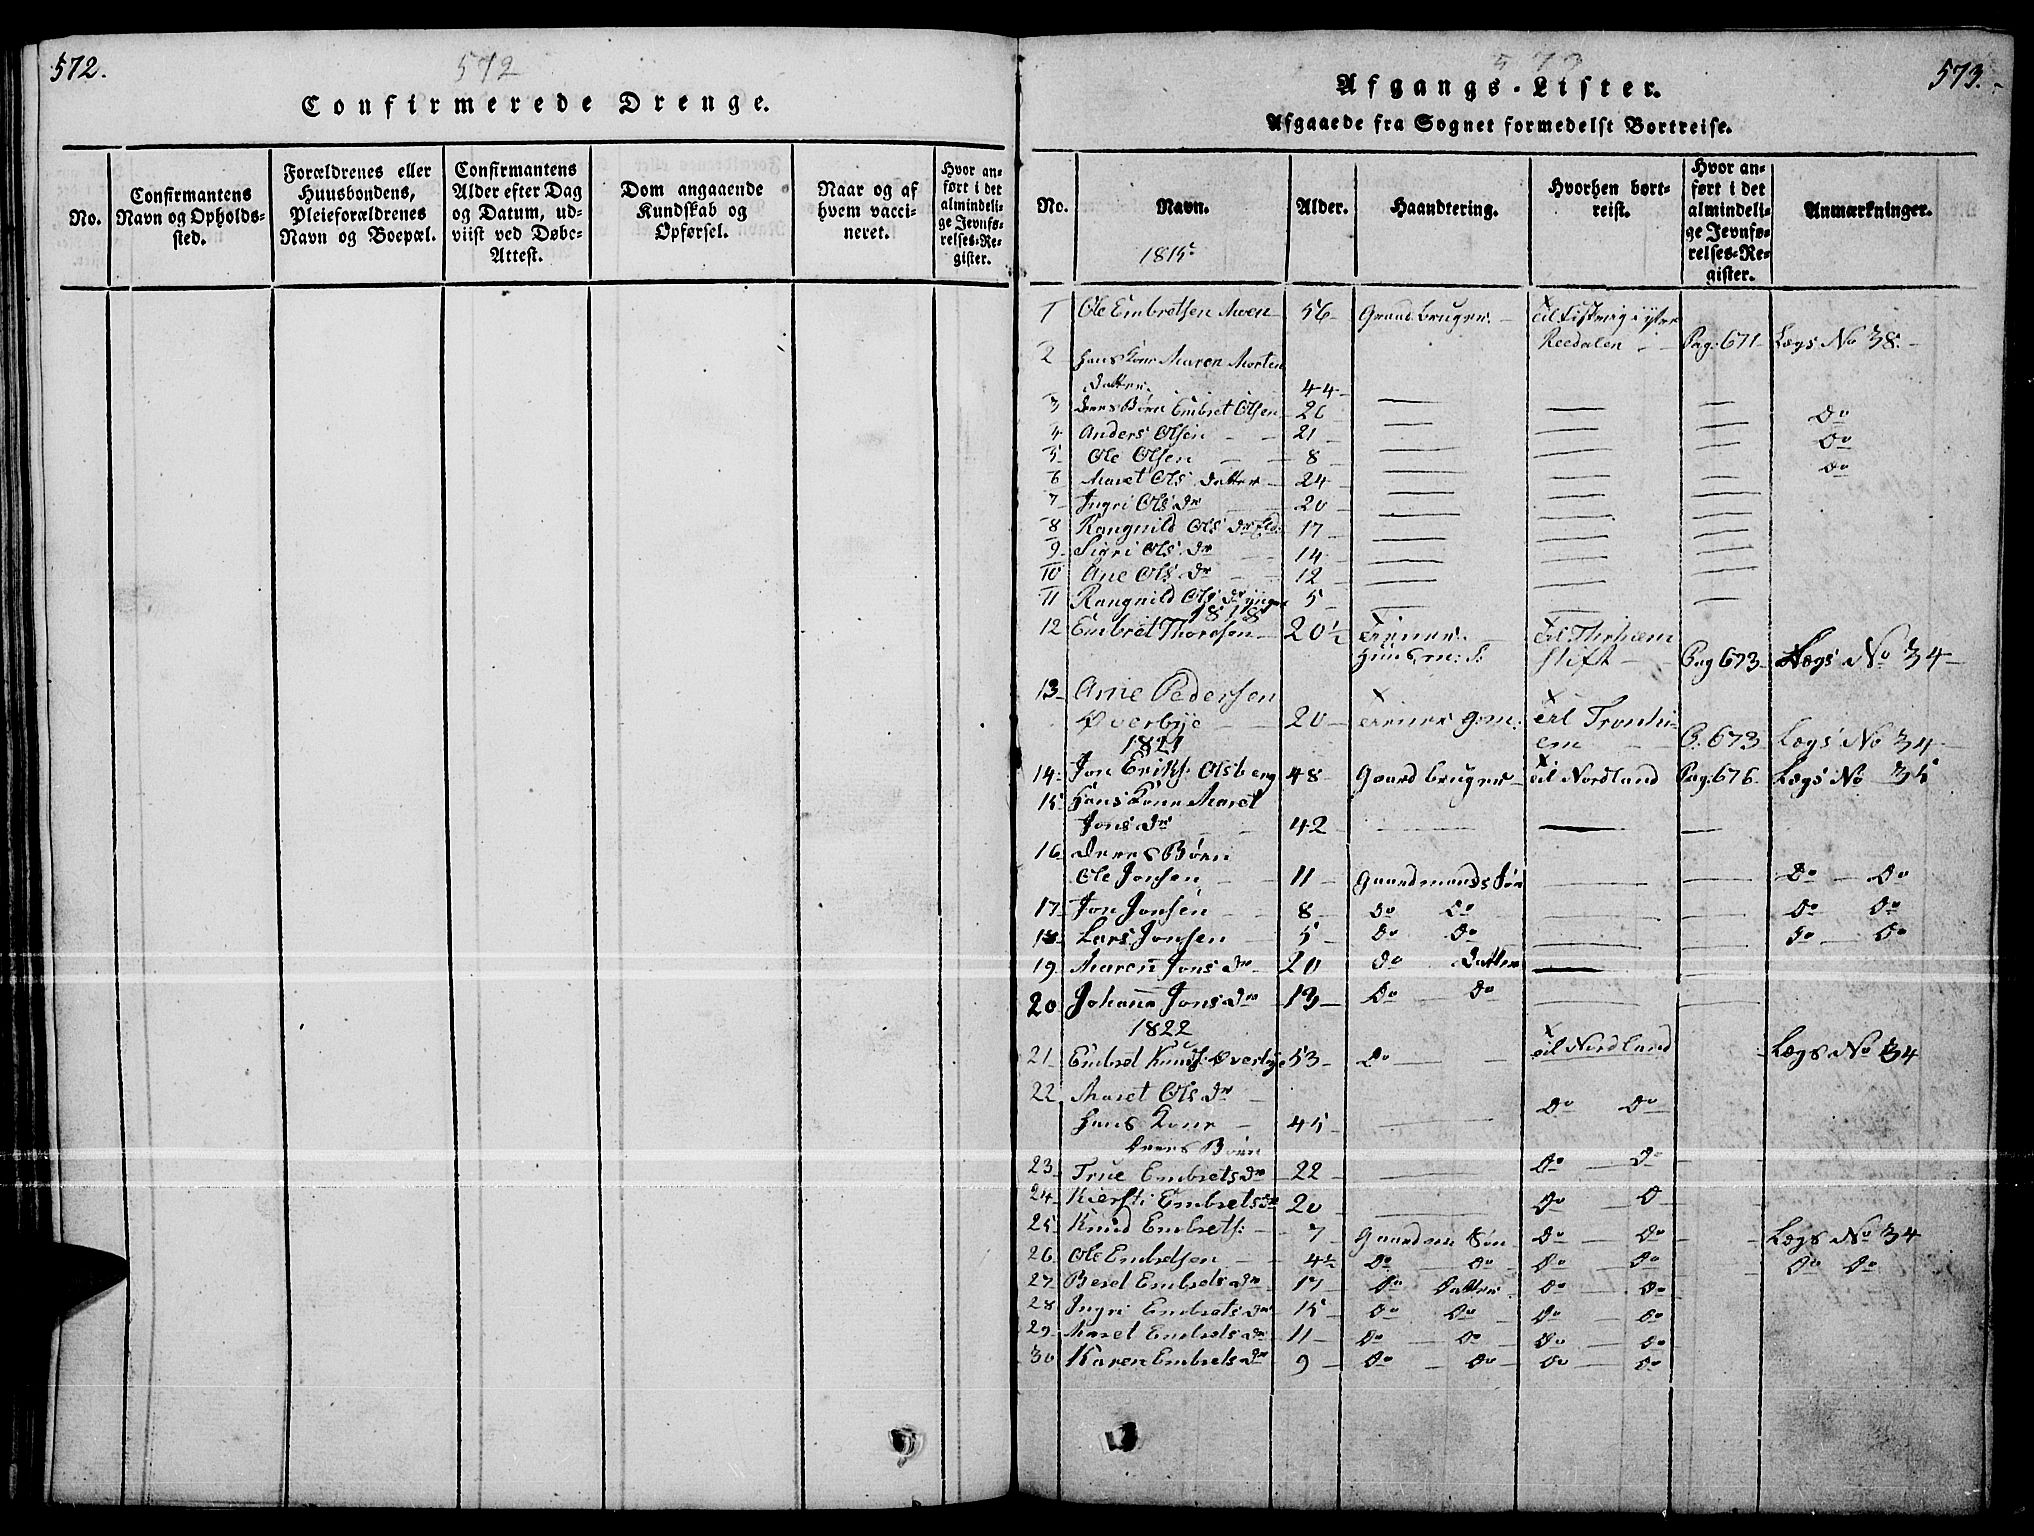 572.
572
Confirmerede Drenge.
No.
Confirmantens Navn og Opholds-sted.
Forældrenes eller Huusbondens, Pleieforældrenes Navn og Boepæl.
Confirmantens Alder efter Dag og Datum, ud-viist ved Døbe-Attest.
Dom angaaende Kundskab og Opførsel.
Naar og af hvem vacci-neret.
Hvor an-ført i det almindeli-ge Jevnfø-relses-Re-gister.
573
573.
Afgangs-Lister.
Afgaaede fra Sognet formedelst Bortreise.
No.
Navn.
Alder.
Haandtering.
Hvorhen bort-reist.
Hvor an-ført i det almindeli-ge Jevnfø-relses-Re-gister.
Anmærkninger.
1815
1 Ole Embretsen Moen 56 Gaardbruger
Reedalen Pag: 671 Lægs No 38.
2 Hans Kone Maren Morten
Datter 44
3 Deres Børn Embret Olsen 26 Do
4 Anders Olsen 21 Do
5 Ole Olsen 8 Do
6 Maret Ols Datter 24
7 Ingri Ols Dr 20
8 Rangnild Ols Dr Eld: 17
9 Sigri Ols Dr 14
10 Ane Ols Dr 12
11 Rangnild Ols Dr yngre 5
1818
12 Embret Thoresen 20½ Tiener til Thrhiem
Huusm: S: stift Pag 673 Lægs No 34
13 Arne Pedersen
Øverbye 20 Tiener G:m: til Tronhi-
em P. 673 Lægs No 34
1821
14 Jon Eriks: Olsberg 48 Gaardbruger til Nordland Pag: 676 Lægs No 35
15 Hans Kone Maret
Jons Dr 42
16 Deres Børn
Ole Jonsen 11 Gaardmands Søn Do Do
17 Jon Jonsen 8 Do Do Do Do
18 Lars Jonsen 5 Do Do Do Do
19 Maren Jons Dr 20 Do Datter
20 Johana Jons Dr 13 Do Do
1822
21 Embret Knuds: Øverbye 53 Do til Nordland Lægs No 34
22 Maret Ols Dr
Hans Kone 45 Do Do
Deres Børn
23 True Embrets Dr 22 Do Do
24 Kiersti Embrets Dr 20 Do D
25 Knud Embrets: 7 Gaardm Søn Do Do Lægs No 34
26 Ole Embretsen 4½ Do Do Do Do Do Do
27 Beret Embrets Dr 17 Do Datter Do Do
28 Ingri Embrets Dr 15 Do Do Do Do
29 Maret Embrets Dr 11 Do Do Do Do
30 Karen Embrets Dr 9 Do Do Do Do